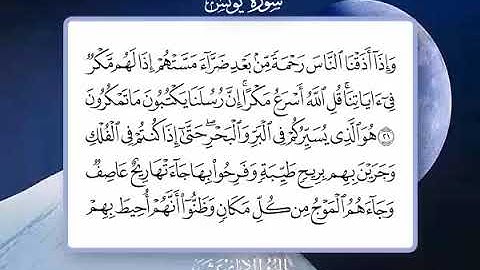 سورة يونس
وَإِذَآ أَذَقْنَا ٱلنَّاسَ رَحْمَةً مِّنۢ بَعْدِ ضَرَّآءَ مَسَّتْهُمْ إِذَا لَهُم مَّكْرٌ
فِىٓ ءَايَاتِنَا ۚ قُلِ ٱللَّهُ أَسْرَعُ مَكْرًا ۚ إِنَّ رُسُلَنَا يَكْتُبُونَ مَا تَمْكُرُونَ
٢١ هُوَ ٱلَّذِى يُسَيِّرُكُمْ فِى ٱلْبَرِّ وَٱلْبَحْرِ ۖ حَتَّىٰٓ إِذَا كُنتُمْ فِى ٱلْفُلْكِ
وَجَرَيْنَ بِهِم بِرِيحٍ طَيِّبَةٍ وَفَرِحُوا۟ بِهَا جَآءَتْهَا رِيحٌ عَاصِفٌ
وَجَآءَهُمُ ٱلْمَوْجُ مِن كُلِّ مَكَانٍ وَظَنُّوٓا۟ أَنَّهُمْ أُحِيطَ بِهِمْ